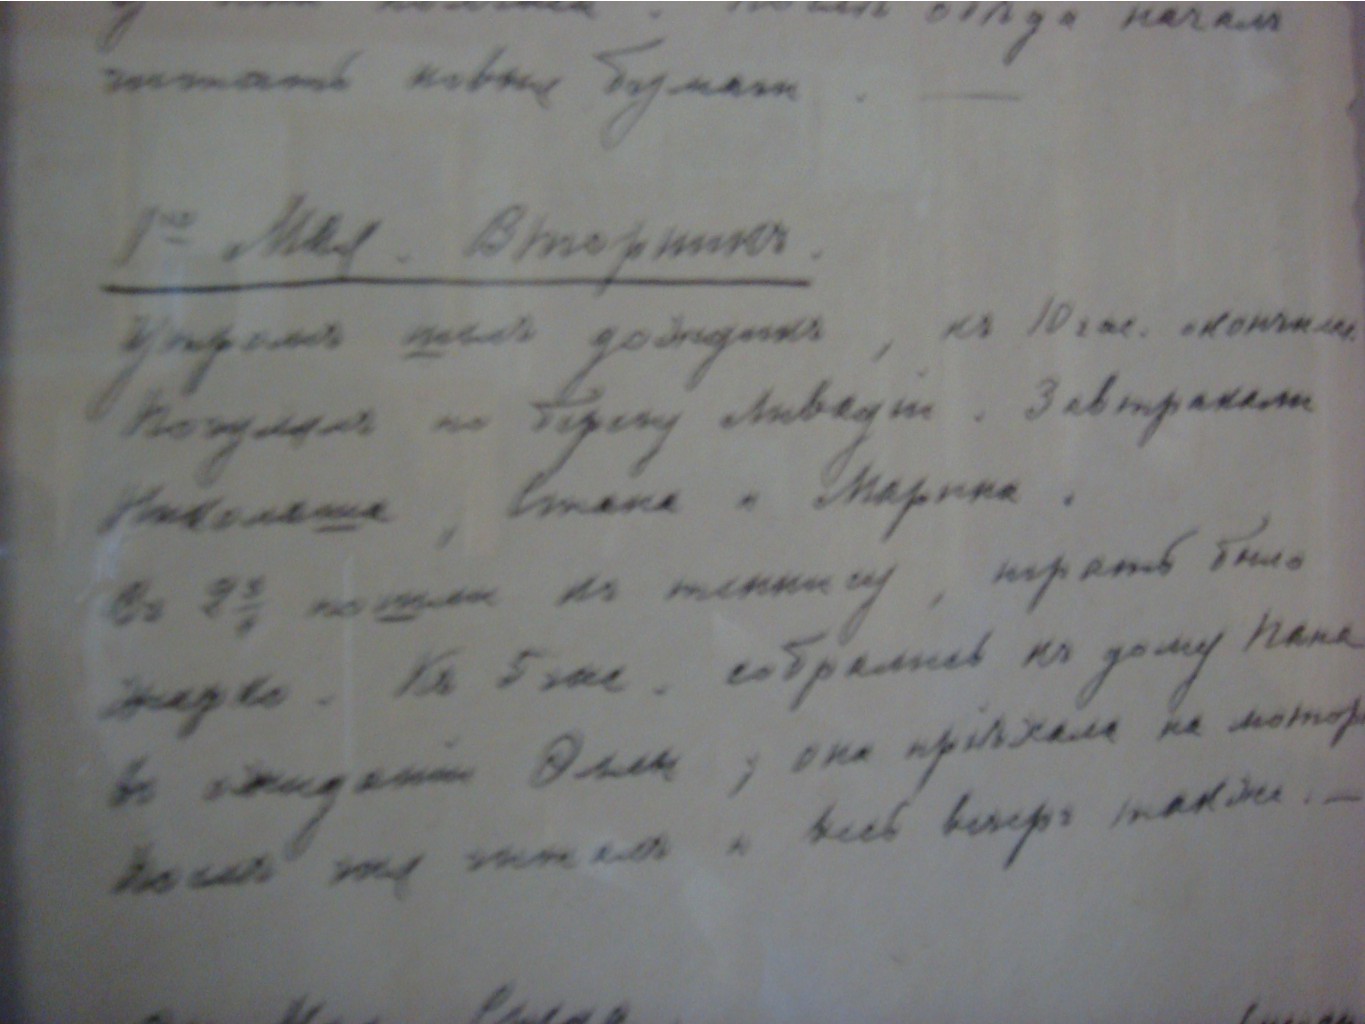 обѣда началъ
читать новыя бумаги. —
1го Мая. Вторникъ.
Утромъ шелъ дождикъ, къ 10 час. окончился.
Погулялъ по берегу Ливадіи. Завтракали
Николаша, Стана и Марина.
Въ 2¾ пошли къ теннису, играть было
жарко. Къ 5 час. собрались къ дому Папа
въ ожиданіи Эллы; она пріѣхала на моторѣ
Послѣ чая читалъ и весь вечеръ также. —
Мая. Среда.